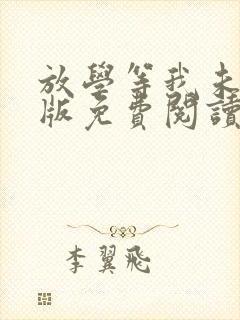 放學等我未
版免費閱讀
李翼飛